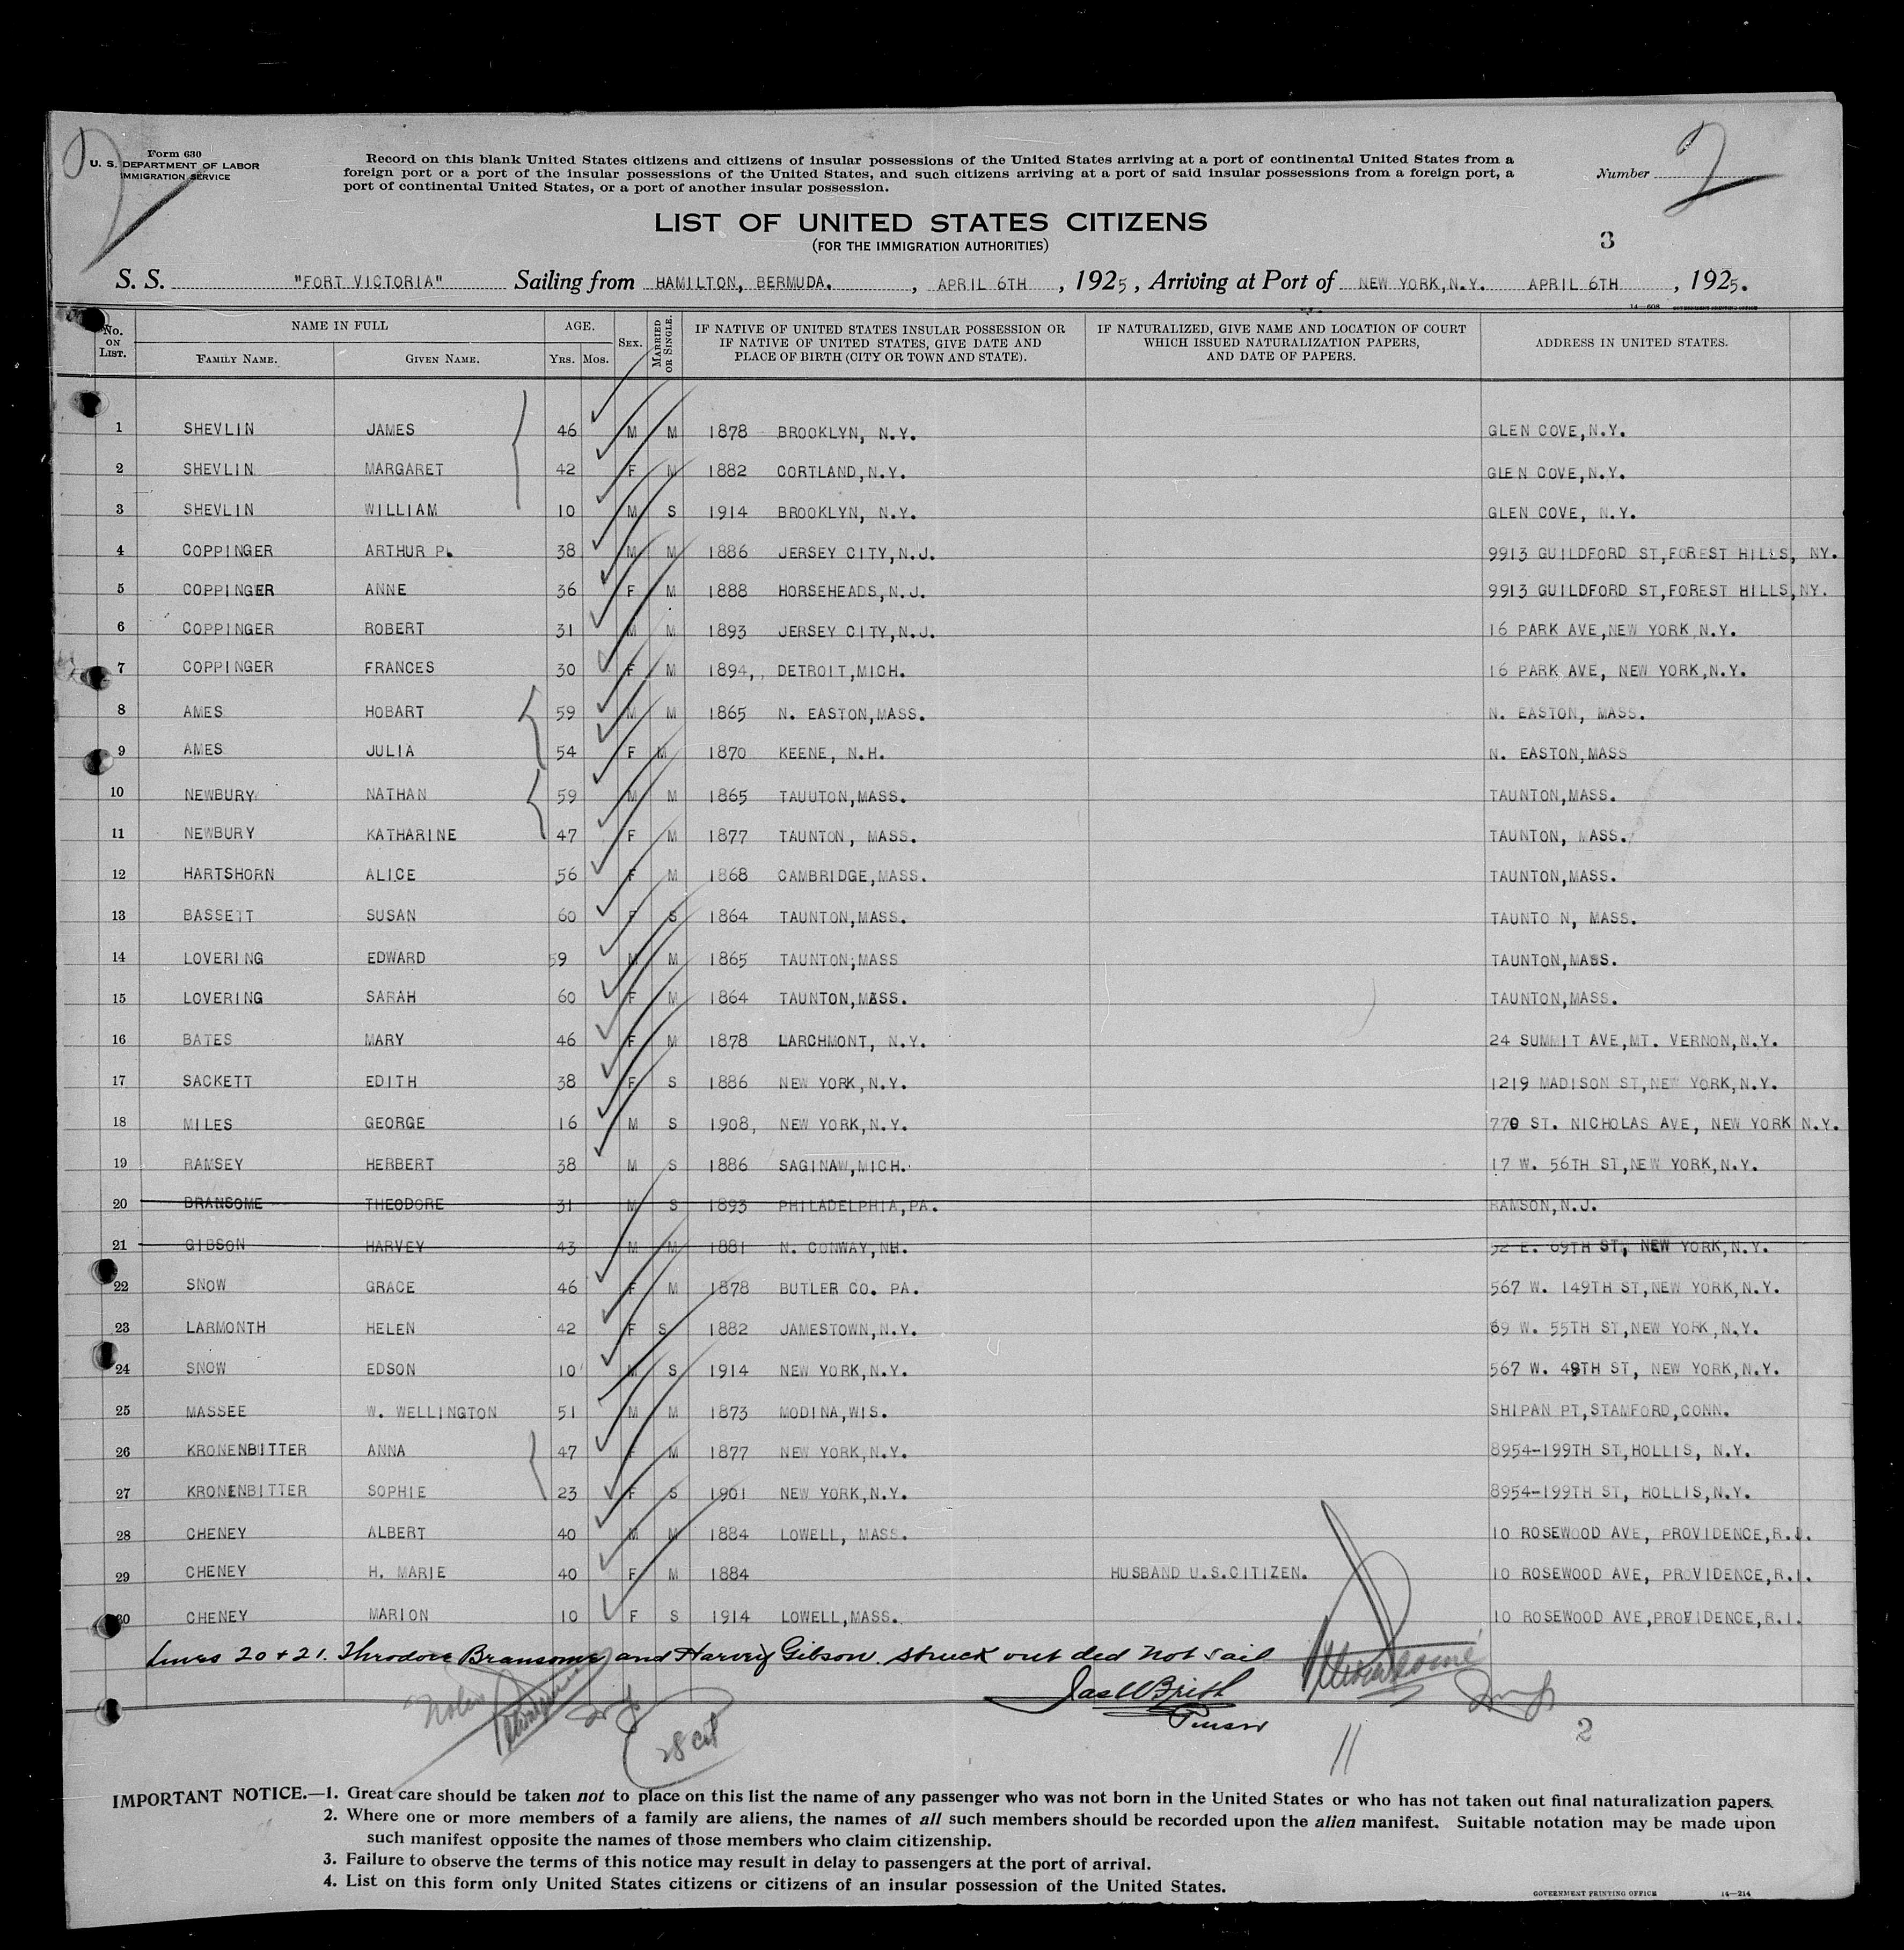 Form 630
U. S. DEPARTMENT OF LABOR
IMMIGRATION SERVICE
Record on this blank United States citizens and citizens of insular possessions of the United States arriving at a port of continental United States from a
foreign port or a port of the insular possessions of the United States, and such citizens arriving at a port of said insular possessions from a foreign port, a
port of continental United States, or a port of another insular possession.
Number 2
LIST OF UNITED STATES CITIZENS
(FOR THE IMMIGRATION AUTHORITIES)
3
S. S. "FORT VICTORIA" Sailing from HAMILTON, BERMUDA. , APRIL 6TH , 1925, Arriving at Port of NEW YORK,N.Y. APRIL 6TH , 1925.
14—608 GOVERNMENT PRINTING OFFICE
No. ON LIST. NAME IN FULL FAMILY NAME. GIVEN NAME. AGE. Yrs. Mos. SEX. MARRIED OR SINGLE. IF NATIVE OF UNITED STATES INSULAR POSSESSION OR IF NATIVE OF UNITED STATES, GIVE DATE AND PLACE OF BIRTH (CITY OR TOWN AND STATE). IF NATURALIZED, GIVE NAME AND LOCATION OF COURT WHICH ISSUED NATURALIZATION PAPERS, AND DATE OF PAPERS. ADDRESS IN UNITED STATES.
1 SHEVLIN JAMES 46 M M 1878 BROOKLYN, N.Y. GLEN COVE,N.Y.
2 SHEVLIN MARGARET 42 F M 1882 CORTLAND,N.Y. GLEN COVE,N.Y.
3 SHEVLIN WILLIAM 10 M S 1914 BROOKLYN, N.Y. GLEN COVE, N.Y.
4 COPPINGER ARTHUR P. 38 M M 1886 JERSEY CITY,N.J. 9913 GUILDFORD ST,FOREST HILLS, NY.
5 COPPINGER ANNE 36 F M 1888 HORSEHEADS,N.J. 9913 GUILDFORD ST,FOREST HILLS,NY.
6 COPPINGER ROBERT 31 M M 1893 JERSEY CITY,N.J. 16 PARK AVE,NEW YORK,N.Y.
7 COPPINGER FRANCES 30 F M 1894,, DETROIT,MICH. 16 PARK AVE, NEW YORK,N.Y.
8 AMES HOBART 59 M M 1865 N. EASTON,MASS. N. EASTON, MASS.
9 AMES JULIA 54 F M 1870 KEENE, N.H. N. EASTON,MASS
10 NEWBURY NATHAN 59 M M 1865 TAUUTON,MASS. TAUNTON,MASS.
11 NEWBURY KATHARINE 47 F M 1877 TAUNTON, MASS. TAUNTON, MASS.
12 HARTSHORN ALICE 56 F M 1868 CAMBRIDGE,MASS. TAUNTON,MASS.
13 BASSETT SUSAN 60 F S 1864 TAUNTON,MASS. TAUNTO N, MASS.
14 LOVERING EDWARD 59 M M 1865 TAUNTON;MASS TAUNTON,MASS.
15 LOVERING SARAH 60 F M 1864 TAUNTON,MASS. TAUNTON,MASS.
16 BATES MARY 46 F M 1878 LARCHMONT, N.Y. 24 SUMMIT AVE,MT. VERNON,N.Y.
17 SACKETT EDITH 38 F S 1886 NEW YORK,N.Y. 1219 MADISON ST,NEW YORK,N.Y.
18 MILES GEORGE 16 M S 1908, NEW YORK,N.Y. 770 ST. NICHOLAS AVE, NEW YORK N.Y.
19 RAMSEY HERBERT 38 M S 1886 SAGINAW,MICH. 17 W. 56TH ST,NEW YORK,N.Y.
20 BRANSOME THEODORE 31 M S 1893 PHILADELPHIA,PA. RAMSON,N.J.
21 GIBSON HARVEY 43 M M 1881 N. CONWAY,NH. 52 E. 69TH ST, NEW YORK,N.Y.
22 SNOW GRACE 46 F M 1878 BUTLER CO. PA. 567 W. 149TH ST,NEW YORK,N.Y.
23 LARMONTH HELEN 42 F S 1882 JAMESTOWN,N.Y. 69 W. 55TH ST,NEW YORK,N.Y.
24 SNOW EDSON 10 M S 1914 NEW YORK,N.Y. 567 W. 49TH ST, NEW YORK,N.Y.
25 MASSEE W. WELLINGTON 51 M M 1873 MODINA,WIS. SHIPAN PT,STAMFORD,CONN.
26 KRONENBITTER ANNA 47 F M 1877 NEW YORK,N.Y. 8954-199TH ST,HOLLIS, N.Y.
27 KRONENBITTER SOPHIE 23 F S 1901 NEW YORK,N.Y. 8954-199TH ST, HOLLIS,N.Y.
28 CHENEY ALBERT 40 M M 1884 LOWELL, MASS. 10 ROSEWOOD AVE, PROVIDENCE,R.I.
29 CHENEY H. MARIE 40 F M 1884 HUSBAND U.S.CITIZEN. 10 ROSEWOOD AVE, PROVIDENCE,R.I.
30 CHENEY MARION 10 F S 1914 LOWELL,MASS. 10 ROSEWOOD AVE,PROVIDENCE,R.I.
Lines 20 + 21. Throdore Bransome and Harvey Gibson. struck out ded not sail
Purser
28 cit
11
2
IMPORTANT NOTICE.—1. Great care should be taken not to place on this list the name of any passenger who was not born in the United States or who has not taken out final naturalization papers.
2. Where one or more members of a family are aliens, the names of all such members should be recorded upon the alien manifest. Suitable notation may be made upon
such manifest opposite the names of those members who claim citizenship.
3. Failure to observe the terms of this notice may result in delay to passengers at the port of arrival.
4. List on this form only United States citizens or citizens of an insular possession of the United States.
GOVERNMENT PRINTING OFFICE 14—214